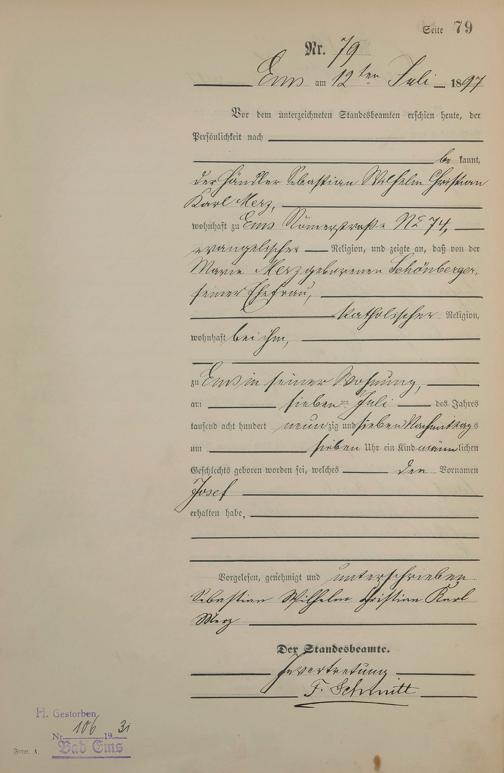 Seite 79
Nr. 79
Ems am 12ten Juli 1897
Vor dem unterzeichneten Standesbeamten erschien heute, der
Persönlichkeit nach
bekannt,
der Händler Sebastian Wilhelm Christian
Karl Merz,
wohnhaft zu Ems Römerstraße No 74,
evangelischer Religion, und zeigte an, daß von der
Marie Merz geborenen Schönberger,
seiner Ehefrau,
katholischer Religion,
wohnhaft bei ihm,
zu Ems in seiner Wohnung,
am sieben Juli des Jahres
tausend acht hundert neunzig und sieben Nachmittags
um sieben Uhr ein Kind männlichen
Geschlechts geboren worden sei, welches den Vornamen
Josef
erhalten habe,
Vorgelesen, genehmigt und unterschrieben
Sebastian Wilhelm Christian Karl
Merz
Der Standesbeamte.
In Vertretung
F. Schmitt
H. Gestorben
Nr. 106 1931
Bad Ems
Form. A.